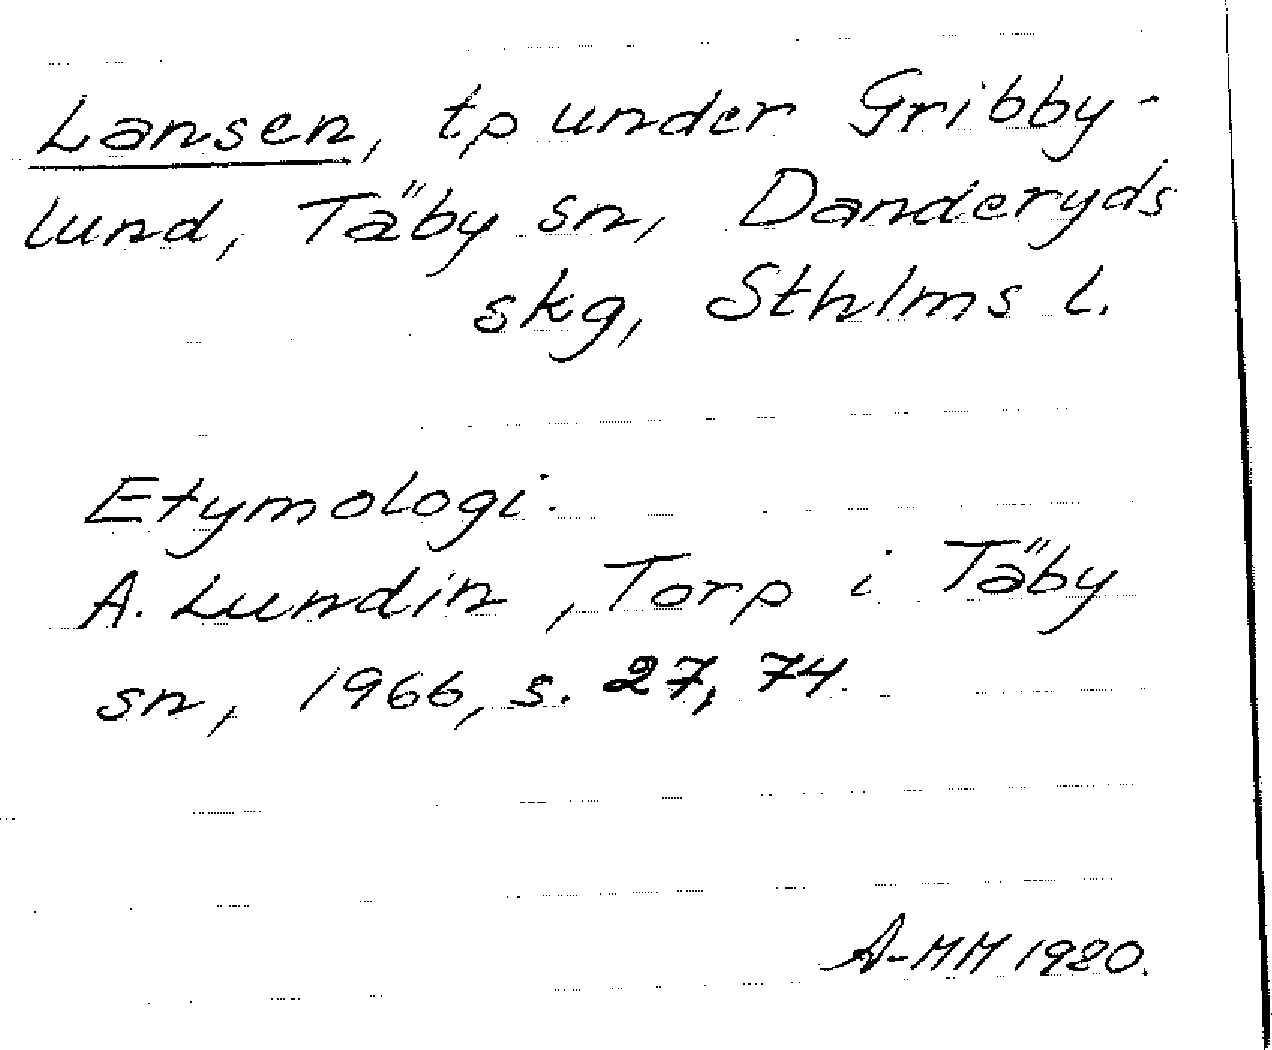 Lansen, tp under Gribby-
lund, Täby sn, Danderyds
skg, Sthlms l.
Etymologi.
A. Lundin, Torp i Täby
sn, 1966, s. 27, 74.
A-MM 1980.